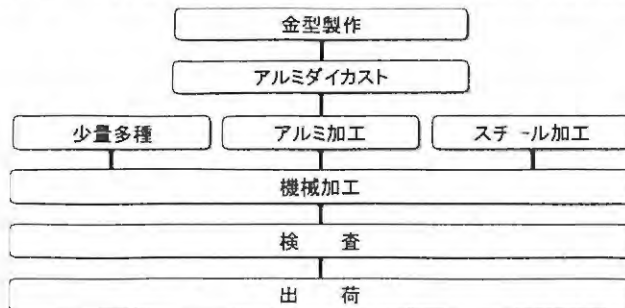 金型製作
アルミダイカスト
少量多種
アルミ加工
スチール加工
機械加工
検　査
出　荷